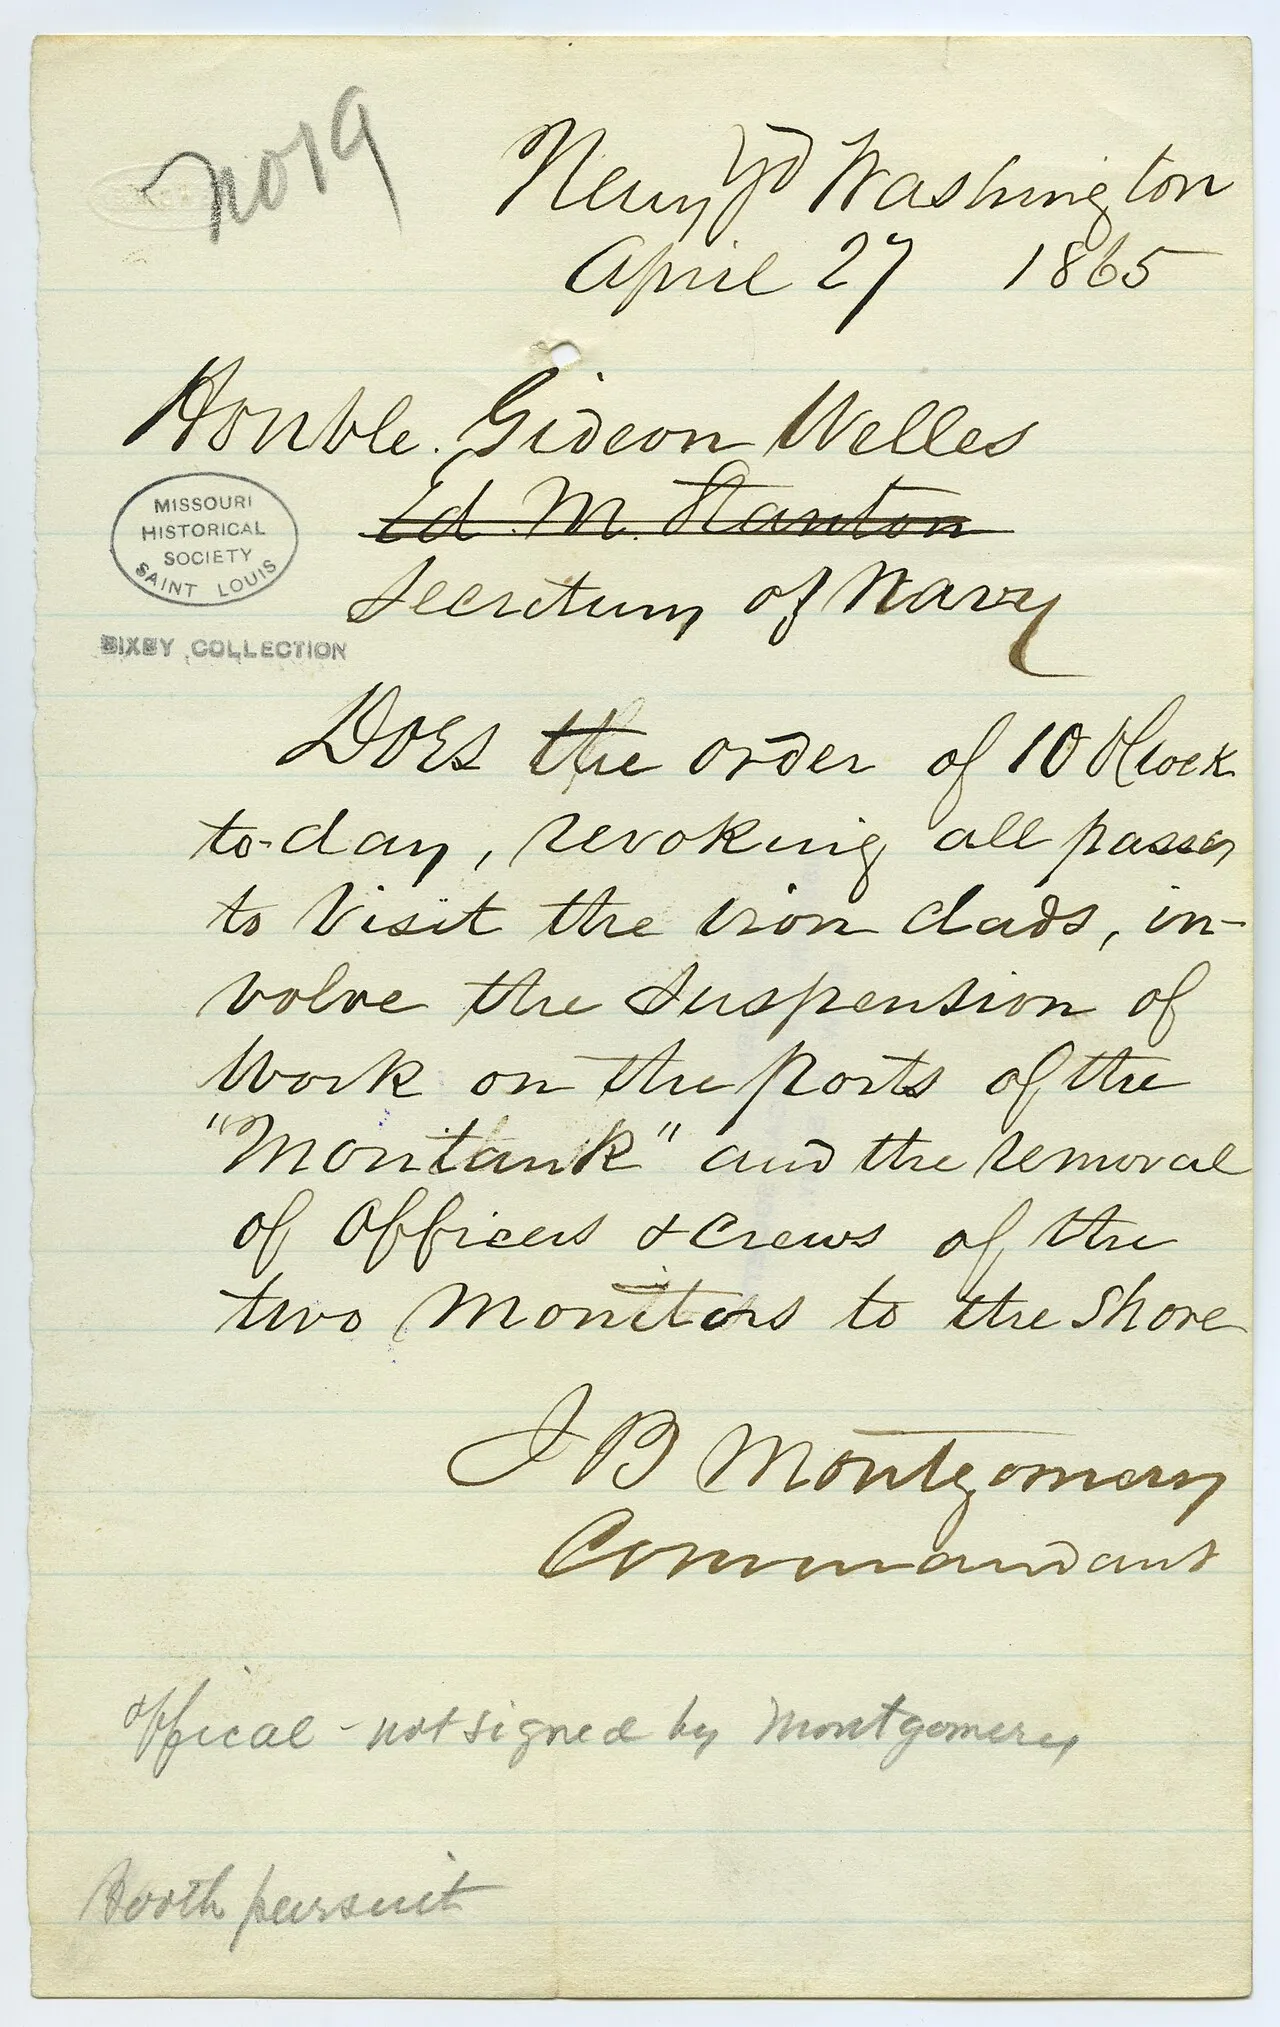 no 19
Navy Yd Washington
April 27 1865
Honble. Gideon Welles
Ed. M. Stanton
Secretary of Navy
MISSOURI
HISTORICAL
SOCIETY
SAINT LOUIS
BIXBY COLLECTION
Does the order of 10 O'Clock
to-day, revoking all passes
to visit the iron clads, in-
volve the suspension of
work on the ports of the
"Montauk" and the removal
of Officers & crews of the
two Monitors to the shore
J B Montgomery
Commandant
offical - not signed by Montgomery
Booth pursuit